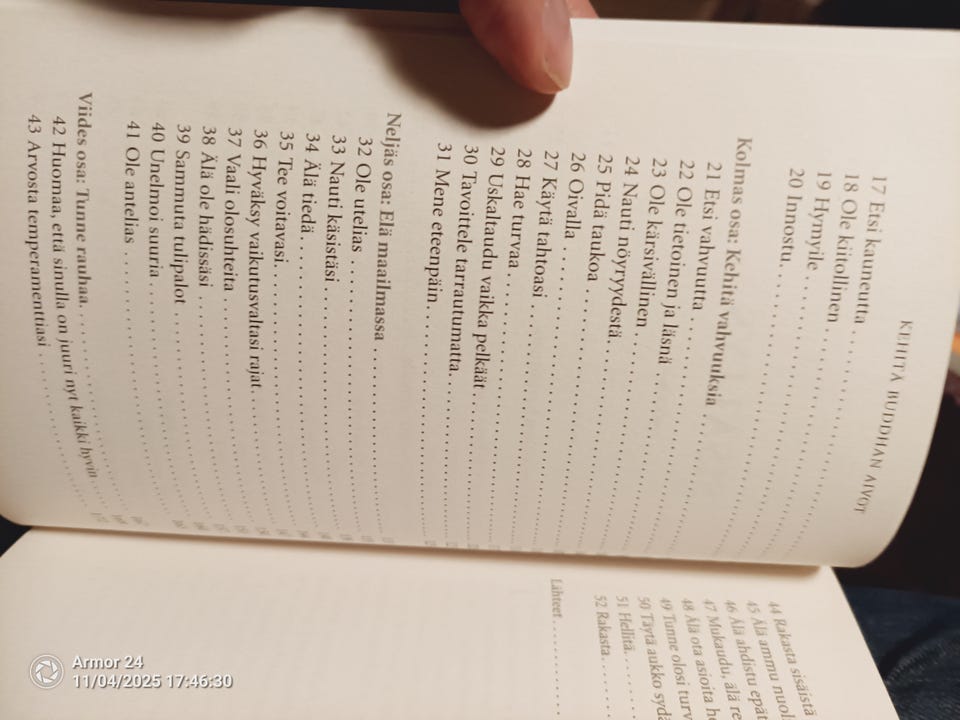 KEHITÄ BUDDHAN AIVOT
17 Etsi kauneutta
18 Ole kiitollinen
19 Hymyile
20 Innostu
Kolmas osa: Kehitä vahvuuksia
21 Etsi vahvuutta
22 Ole tietoinen ja läsnä
23 Ole kärsivällinen
24 Nauti nöyryydestä
25 Pidä taukoa
26 Oivalla
27 Käytä tahtoasi
28 Hae turvaa
29 Uskaltaudu vaikka pelkäät
30 Tavoittele tarrautumatta
31 Mene eteenpäin
Neljäs osa: Elä maailmassa
32 Ole utelias
33 Nauti käsistäsi
34 Älä tiedä
35 Tee voitavasi
36 Hyväksy vaikutusvaltasi rajat
37 Vaali olosuhteita
38 Älä ole hädissäsi
39 Sammuta tulipalot
40 Unelmoi suuria
41 Ole antelias
Viides osa: Tunne rauhaa
42 Huomaa, että sinulla on juuri nyt kaikki hyvin
43 Arvosta temperamenttiasi
44 Rakasta sisäistä
45 Älä ammu
46 Älä ahdistu
47 Mukaudu, älä
48 Älä ota asioita
49 Tunne olosi
50 Täytä aukko
51 Hellitä
52 Rakasta
Lähteet
Armor 24
11/04/2025 17:46:30